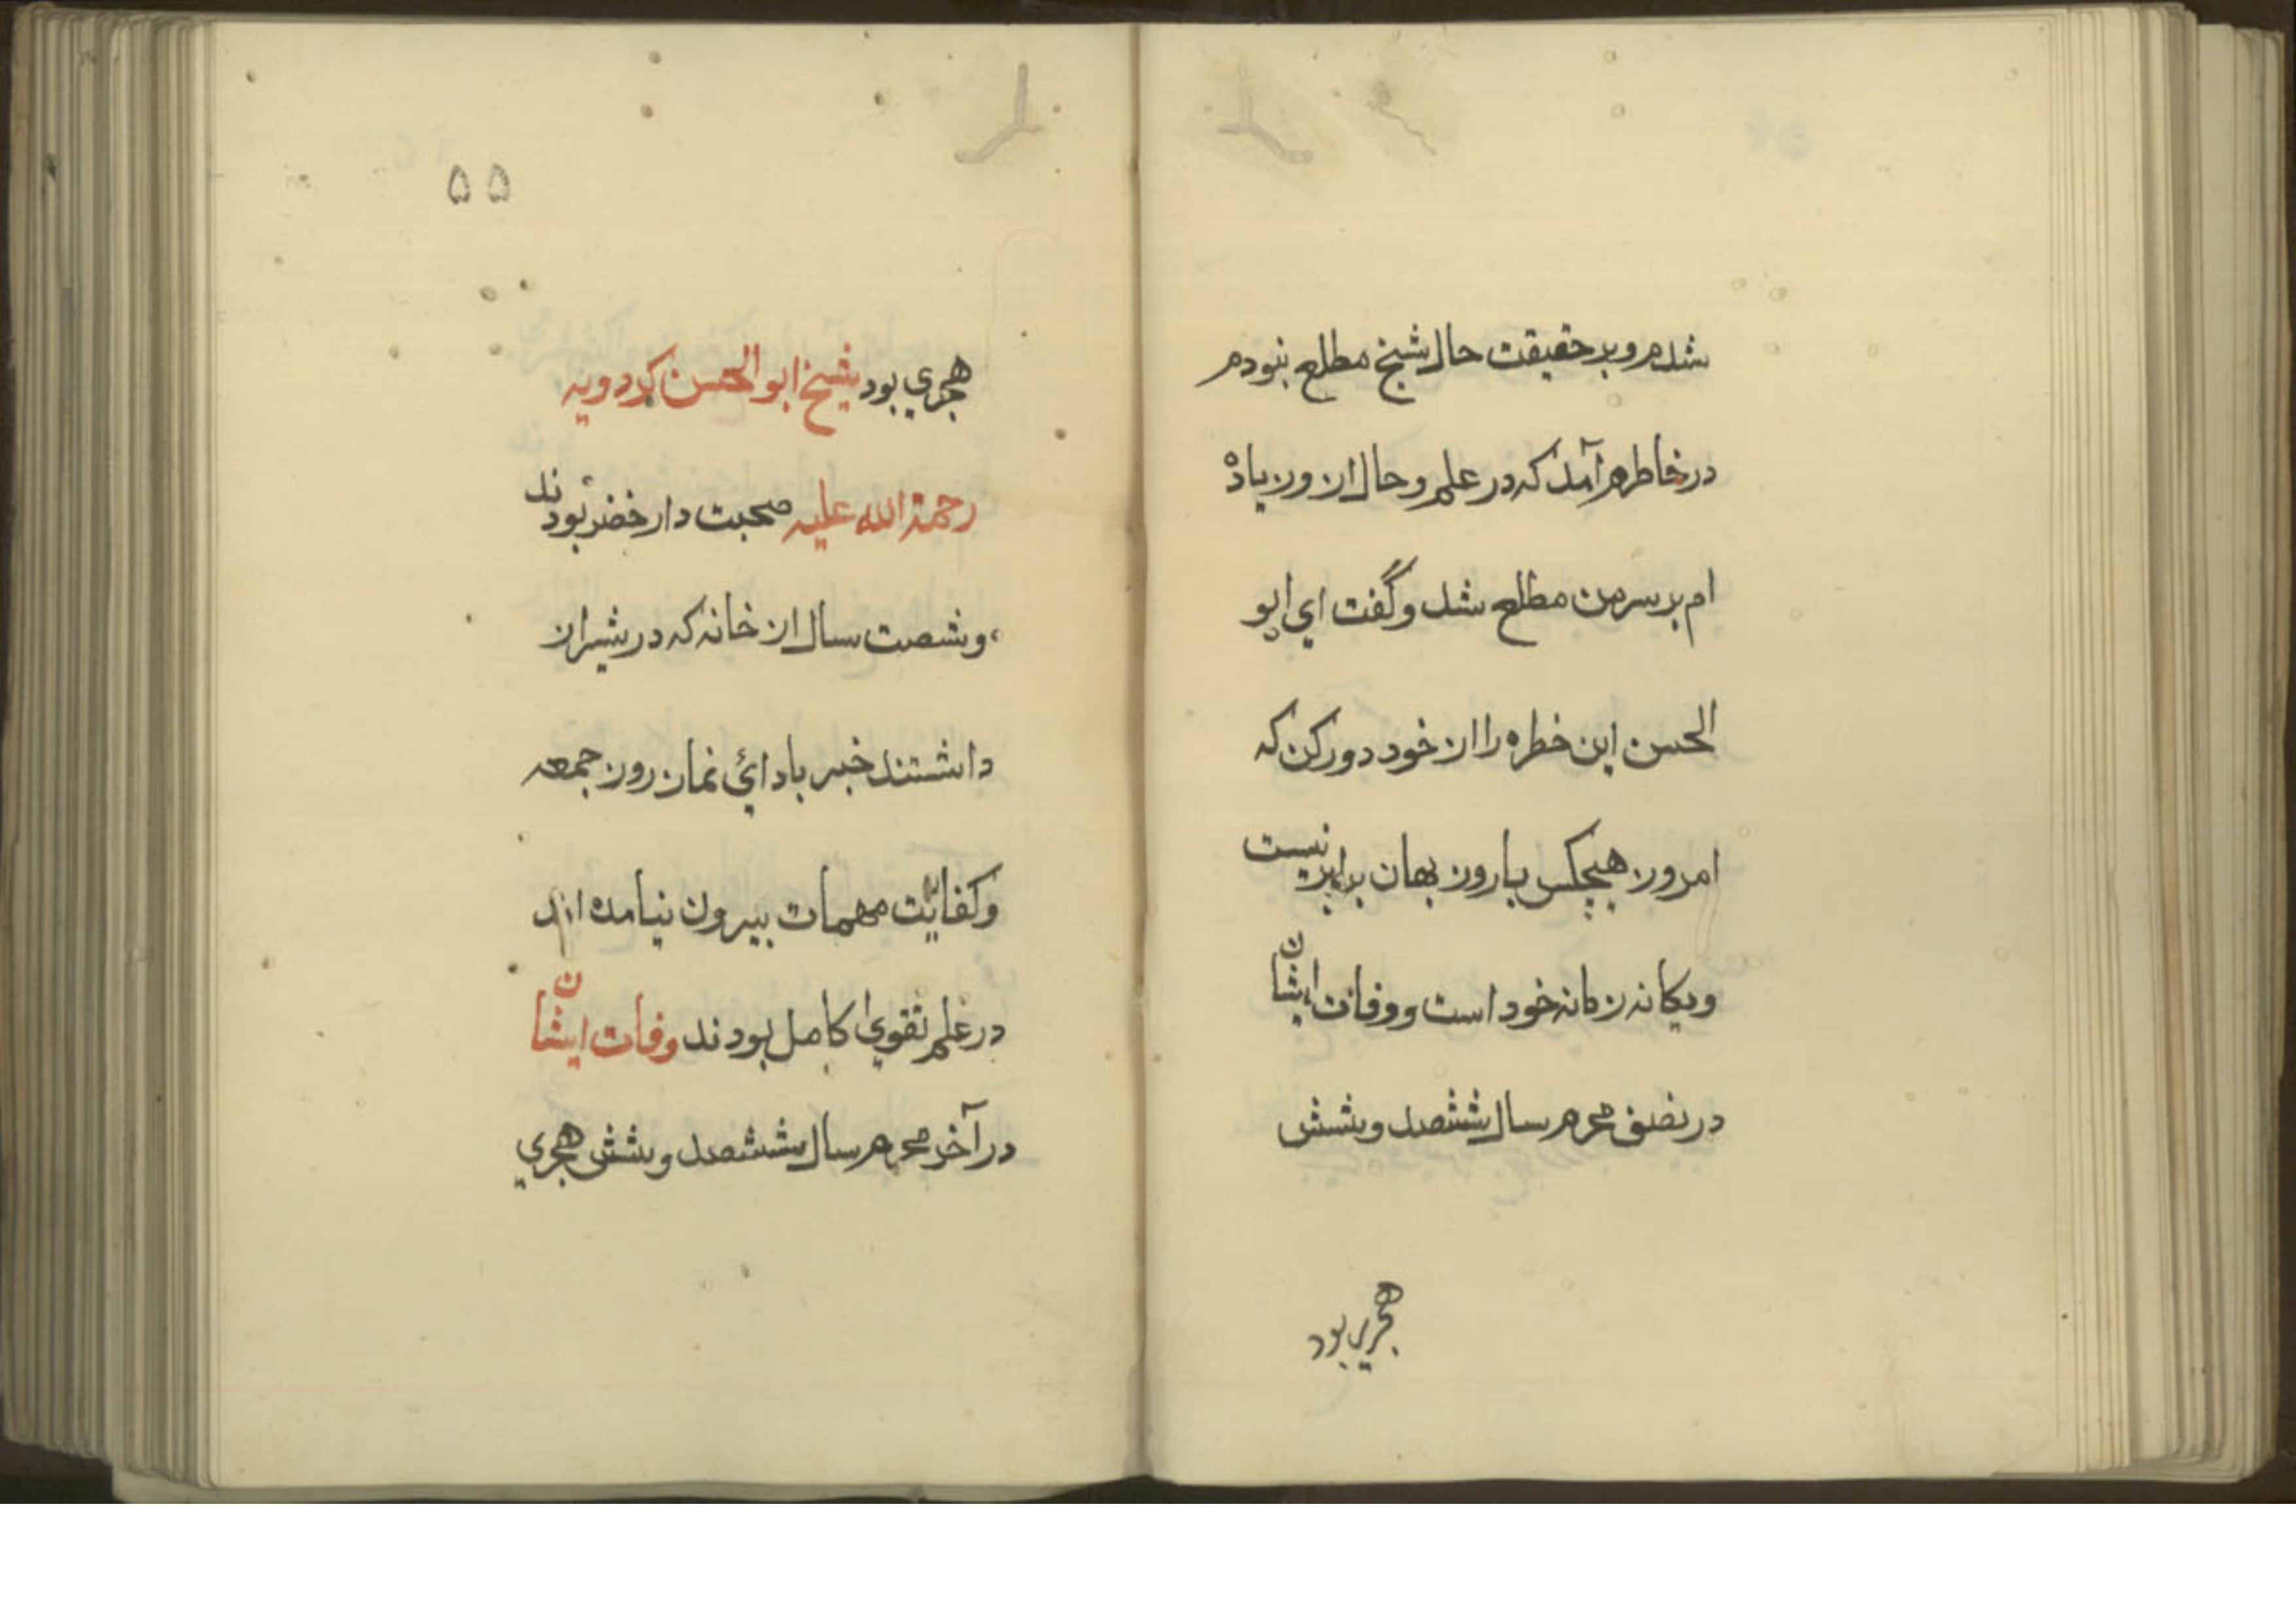 شدم و بر حقیقت حال شیخ مطلع نبودم
در خاطرم آمد که در علم و حال ازو زیاده
ام بر سر من مطلع شد و گفت ای ابو
الحسن این خطره را از خود دور کن که
امروز هیچکس با روز بهان برابر نیست
و یکانه زمانه خود است و وفات ایشان
در نصف محرم سال ششصد و شش
هجری بود
۵۵
هجري بود شیخ ابو الحسن کردویه
رحمة الله علیه صحبت دار خضر بودند
و شصت سال از خانه که در شیراز
داشتند خبر باداي نماز روز جمعه
و کفایت مهمات بیرون نیامده اند
در علم تقوي کامل بودند وفات ایشان
در آخر محرم سال ششصد و شش هجري